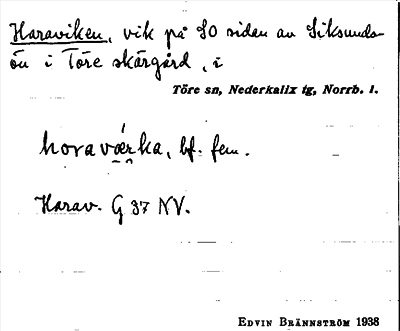 Haraviken, vik på SO sidan av Siksunds-
ön i Töre skärgård, i
Töre sn, Nederkalix tg, Norrb. l.
hɔravǽrka, bf. fem.
Harav. G 37 NV.
EDVIN BRÄNNSTRÖM 1938